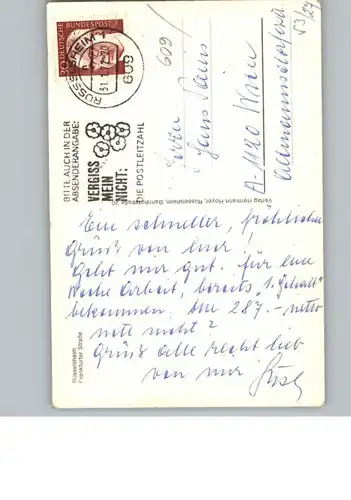 30 DEUTSCHE BUNDESPOST
RÜSSELSHEIM 1
609
BITTE AUCH IN DER
ABSENDERANGABE:
VERGISS
MEIN
NICHT:
DIE POSTLEITZAHL
609
Herrn
Hans
A-1120 Wien
53/24
Verlag Hermann Hoyer, Rüsselsheim, Bahnhofstraße
Rüsselsheim
Frankfurter Straße
Ein schneller, fröhlicher
Gruß von hier!
Geht mir gut. Für eine
Woche Arbeit, bereits "1. Gehalt"
bekommen. 287.- netto
nett nicht?
Grüß alle recht lieb
von mir